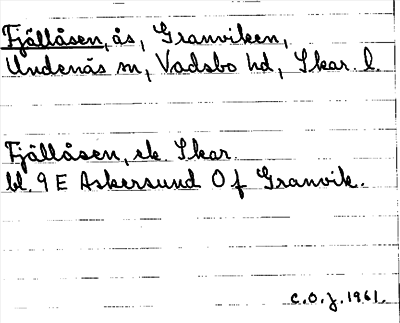 Fjällåsen, ås, Granviken,
Undenäs sn, Vadsbo hd, Skar. l.
Fjällåsen, ek. Skar.
bl. 9 E Askersund O f Granvik.
C.O.J. 1961.